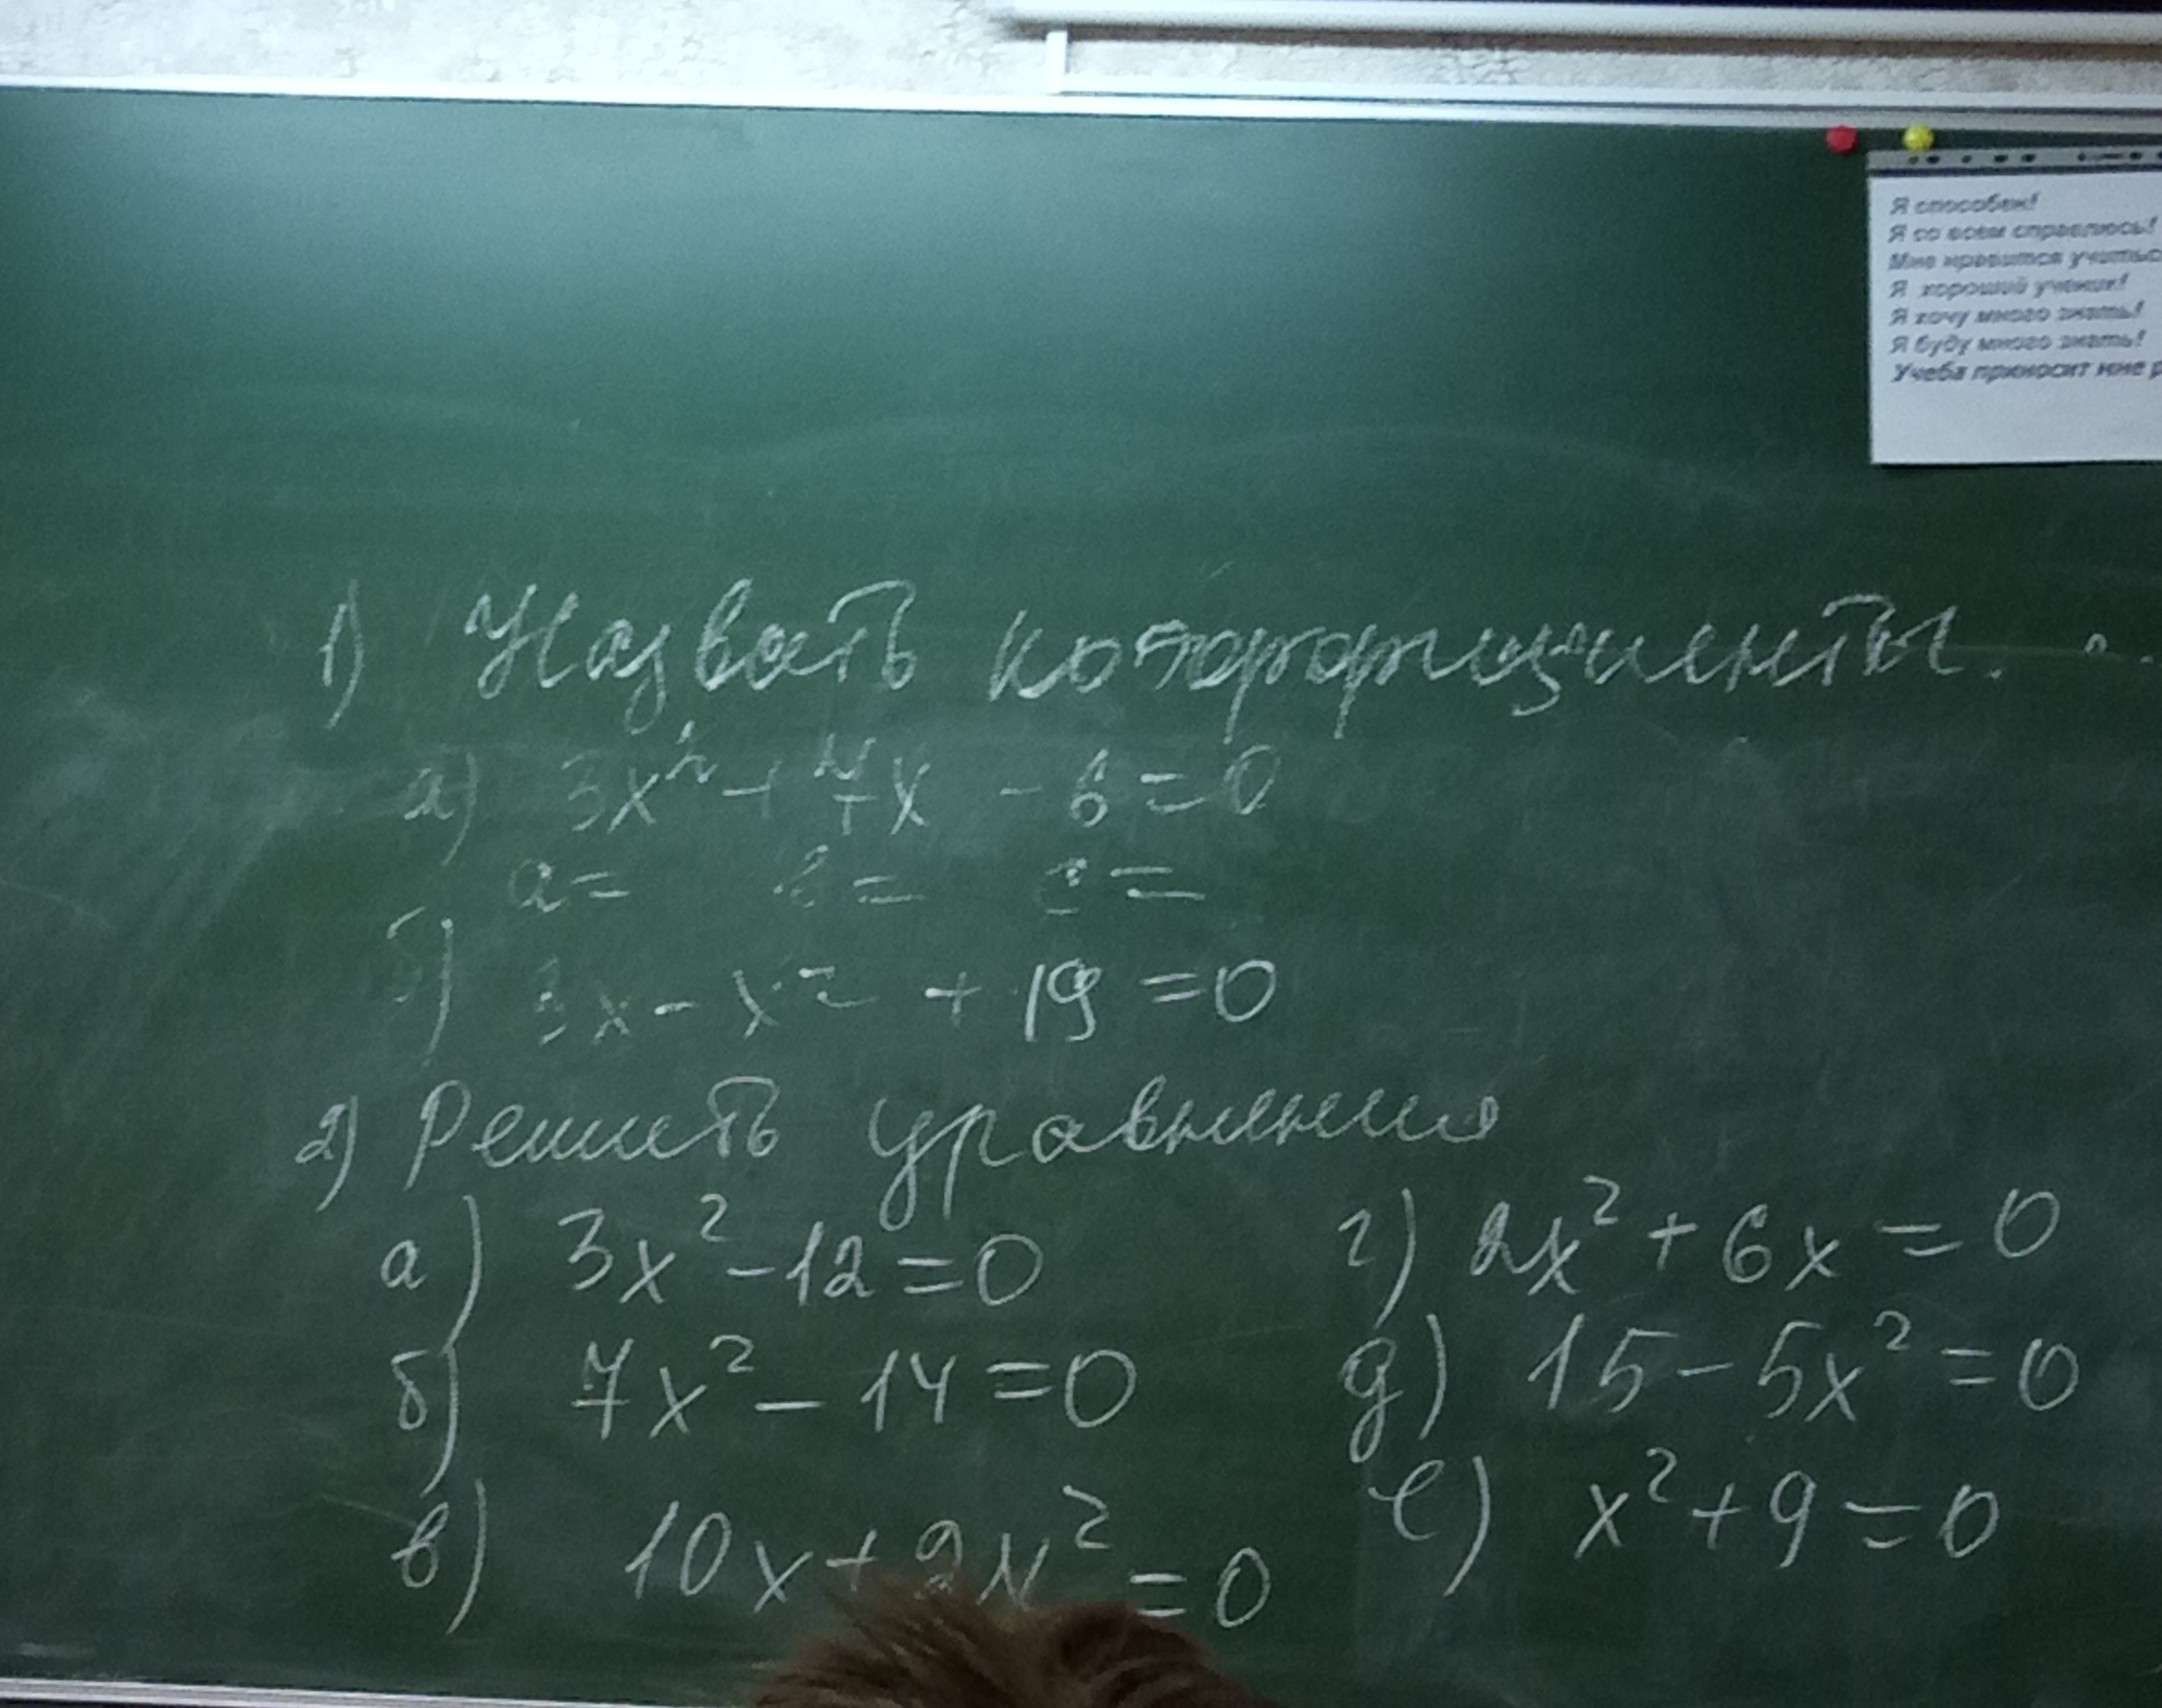 Я способен!
Я со всем справлюсь!
Мне нравится учитьс
Я хороший ученик!
Я хочу много знать!
Я буду много знать!
Учеба приносит мне р
1) Назвать коэффициенты.
а) 3x² + 4x - 6 = 0
a = b = c =
б) 3x - x² + 19 = 0
2) Решить уравнения
а) 3x² - 12 = 0
б) 7x² - 14 = 0
в) 10x + 2x² = 0
г) 2x² + 6x = 0
д) 15 - 5x² = 0
е) x² + 9 = 0